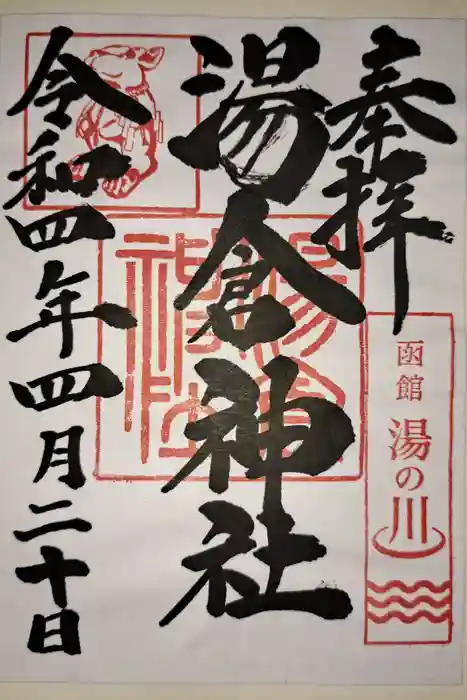 奉拝
函館
湯の川
湯倉神社
令和四年四月二十日